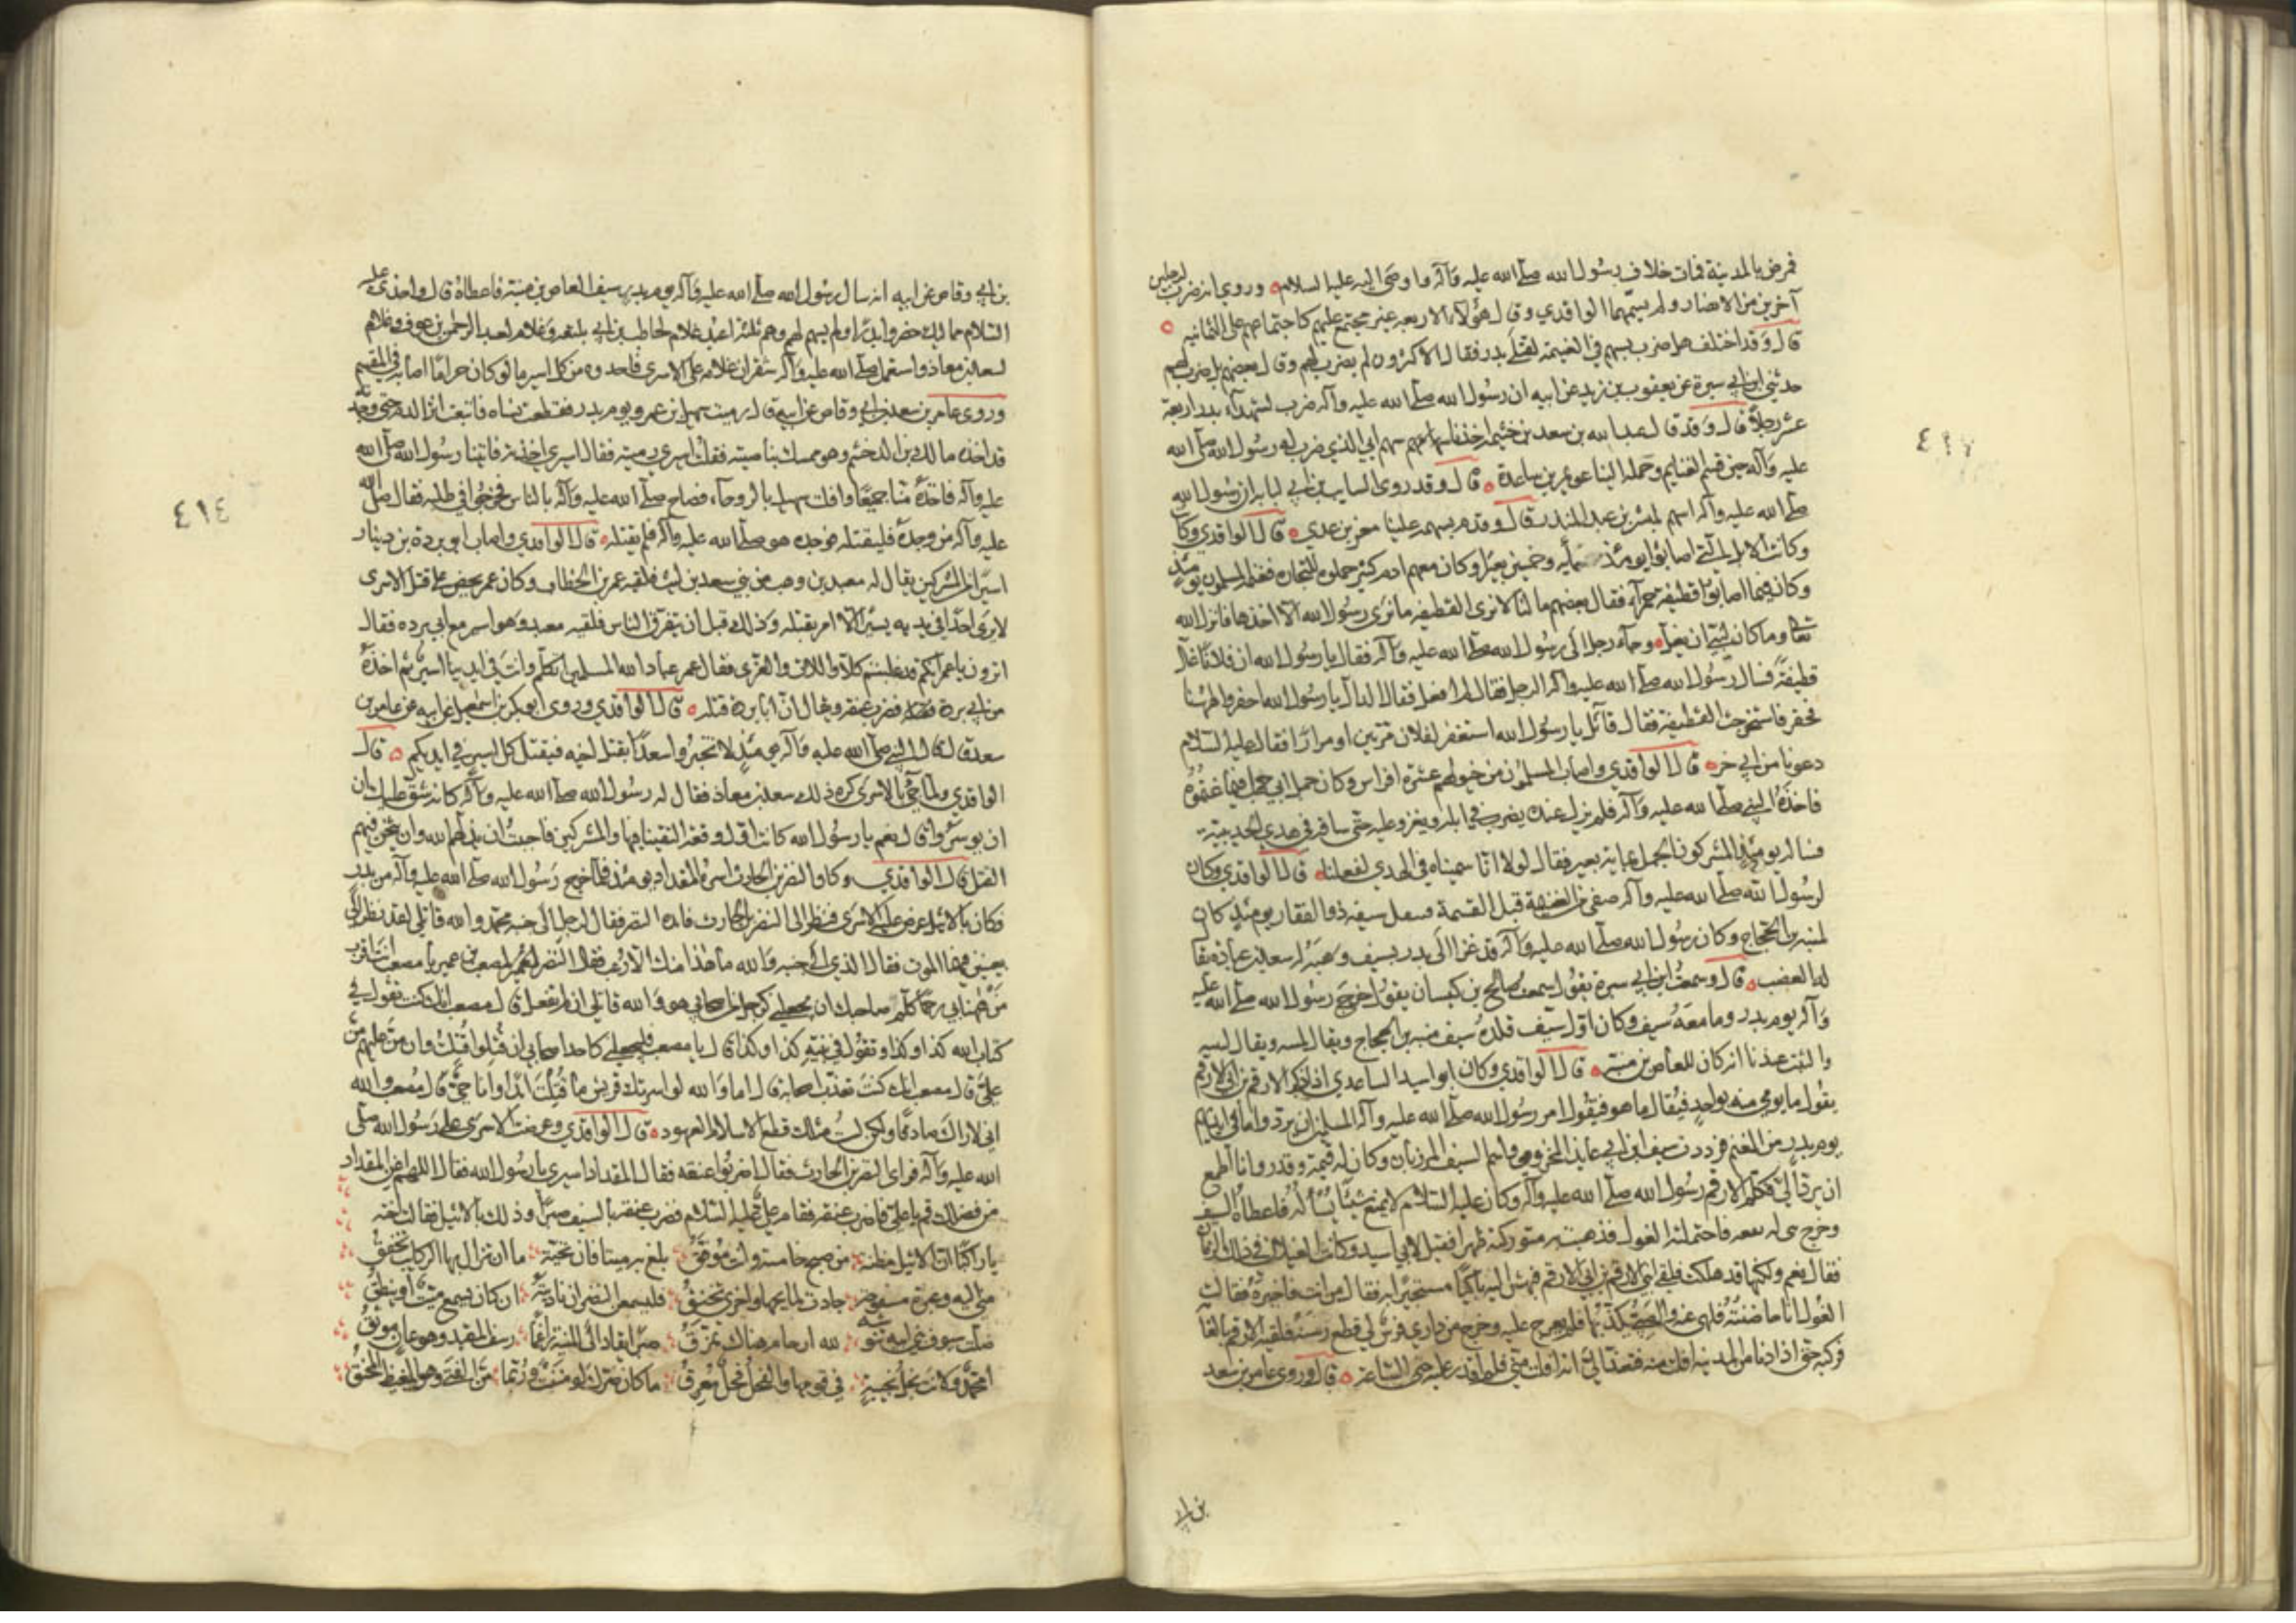 فمرض بالمدينة فمات خلاف رسول الله صلى الله عليه وآله وأوصى اليه عليه السلام ه وروي انه ضرب لرجلين
آخرين من الانصار ولم يسمهما الواقدي وقال هؤلاء الاربعه غير مجتمع عليهم كاجتماعهم على الثمانيه ه
قال وقد اختلف هل ضرب بسهم في الغنيمة لقتلى بدر فقال الاكثرون لم يضرب لهم وقال بعضهم بل ضرب لهم
حدثني ابن ابي سبرة عن يعقوب بن زيد عن ابيه ان رسول الله صلى الله عليه وآله ضرب لشهداء بدر اربعة
عشر رجلا قال وقد قال عبد الله بن سعد بن خيثمه اخذنا سهم ابي الذي ضرب له رسول الله صلى الله
عليه وآله حين قسم الغنايم وحمله الينا عويمر بن ساعدة ه قال وقد روى السايب بن ابي لبابه ان رسول الله
صلى الله عليه وآله اسهم لمبشر بن عبد المنذر قال وقدم بسهمه علينا معن بن عدي ه قال الواقدي وكا
وكانت الابل التي اصابوا يومئذ مايه وخمسين بعيرا وكان معهم ادم كثير حملوه للتجاره فغنمه المسلمون يومئذ
وكان فيما اصابوا قطيفة حمراء فقال بعضهم ما لنا لا نرى القطيفه ما نرى رسول الله الا اخذها فانزل الله
تعالى وما كان لنبي ان يغل ه وجاء رجل الى رسول الله صلى الله عليه وآله فقال يا رسول الله ان فلانا غل
قطيفة فسال رسول الله صلى الله عليه وآله الرجل فقال لم افعل فقال الدال يا رسول الله احفروا هاهنا
فحفر فاستخرجت القطيفة فقال قائل يا رسول الله استغفر لفلان مرتين او مرارا فقال عليه السلام
دعونا من ابي خر ه قال الواقدي واصاب المسلمون من خيولهم عشرة افراس وكان جمل ابي جهل فيما غنموه
فاخذه النبي صلى الله عليه وآله فلم يزل عنده يضرب في ابله ويغزو عليه حتى ساقه في هدي الحديبية
فساله يومئذ المشركون الجمل بماية بعير فقال لولا انا سميناه في الهدي لفعلنا ه قال الواقدي وكان
لرسول الله صلى الله عليه وآله صفي من الغنيمة قبل القسمة فتنفل سيفه ذو الفقار يومئذ كان
لمنبه بن الحجاج وكان رسول الله صلى الله عليه وآله قد غزا الى بدر بسيف وهبه له سعد بن عبادة يقا
له العضب ه قال وسمعت ابن ابي سبرة يقول سمعت صالح بن كيسان يقول خرج رسول الله صلى الله عليه
وآله يوم بدر وما معه سيف وكان اول سيف قلده سيف منبه بن الحجاج ويقال
والثبت عندنا انه كان للعاص بن منبه ه قال الواقدي وكان ابو اسيد الساعدي اذا ذكر الارقم بن ابي الارقم
يقول ما يومي منه بواحد فيقال ما هو فيقول امر رسول الله صلى الله عليه وآله المسلمين ان يردوا ما في ايديهم
يوم بدر من المغنم فرددت سيف ابن ابي عايذ المخزومي واسم السيف المرزبان وكان له قيمة وقدر وانا اطمع
ان يرده الي فكلم الارقم رسول الله صلى الله عليه وآله وكان عليه السلام لا يمنع شيئا يسأله فاعطاه السيف
وخرج بني له يفعه فاحتملته الغول فذهبت به متوركته ظهرا فقيل لابي اسيد وكانت الغيلان في ذلك الزمان
فقال نعم ولكنها قد هلكت فلقي ابني الارقم بن ابي الارقم فهش اليه باكيا مستجيرا به فقال من انت فاخبره فقالت
الغول انا حاضنته فلهى عنه والصبي يكذبها فلم يعرج عليه وخرج من داري فرس لي قطع رسنه فلقيه الارقم بالغا
فركبه حتى اذا دنا من المدينه افلت منه فتعذر الي انه افلت مني فلم اقدر عليه حتى الساعة ه قال وروى عامر بن سعد
بن ابي
بن ابي وقاص عن ابيه انه سال رسول الله صلى الله عليه وآله يوم بدر سيف العاص بن منبه فاعطاه قال واخذى عليه
السلام مماليك حضروا بدرا ولم يسهم لهم وهم ثلثة اعبد غلام لحاطب بن ابي بلتعه وغلام لعبد الرحمن بن عوف وغلام
لسعد بن معاذ واستعمل صلى الله عليه وآله شقران غلامه على الاسرى فاحذوه من كل اسير ما لو كان حرا ما اصابه في المقسم
وروى عامر بن سعد بن ابي وقاص عن ابيه قال رميت سهيل بن عمرو يوم بدر فقطعت نساه فاتبعت اثر الدم حتى وجدته
قد اخذه مالك بن الدخشم وهو ممسك بناصيته فقلت اسيري رميته فقال اسيري اخذته فاتينا رسول الله صلى الله
عليه وآله فاخذه منا جميعا وافلت سهيل بالروحاء فصاح صلى الله عليه وآله بالناس فخرجوا في طلبه فقال صلى الله
عليه وآله من وجده فليقتله فوجده هو صلى الله عليه وآله فلم يقتله ه قال الواقدي واصاب ابو بردة بن دينار
اسيرا من المشركين يقال له معبد بن وهب من بني سعد بن ليث فلقيه عمر بن الخطاب وكان عمر يحض على قتل الاسرى
لا يرى احدا في يديه يسيرا الا امر بقتله وذلك قبل ان يتفرق الناس فلقيه معبد وهو اسير مع ابي برده فقال
اترون يا عمر انكم قد غلبتم كلا واللات والعزى فقال عمر عباد الله المسلمين اتتكلم وانت في ايدينا اسير ثم اخذه
من ابي بردة فضرب عنقه ويقال ان ابا بردة قتله ه قال الواقدي وروى ابو بكر بن اسمعيل عن ابيه عن عامر بن
سعد قال قال النبي صلى الله عليه وآله يومئذ لا تخبروا سعدا بقتل اخيه فيقتل كل اسير في ايديكم ه قال
الواقدي ولما جيء بالاسرى كره ذلك سعد بن معاذ فقال له رسول الله صلى الله عليه وآله كانه شق عليك ان
ان يوسروا قال نعم يا رسول الله كانت اول وقعة التقينا فيها والمشركين فاحببت ان يذلهم الله وان يثخن فيهم
القتل قال الواقدي وكان النضر بن الحارث اسره المقداد يومئذ فلما خرج رسول الله صلى الله عليه وآله من بدر
فكان بالاثيل عرض عليه الاسرى فنظر الى النضر بن الحارث فابده النظر فقال لرجل الى جنبه محمد والله قاتلي لقد نظر الي
بعينين فيهما الموت فقال الذي الى جنبه والله ما هذا منك الا رعب فقال النضر لمصعب بن عمير يا مصعب انت اقرب
من ههنا بي رحما كلم صاحبك ان يجعلني كرجل من اصحابي هو والله قاتلي ان لم تفعل قال مصعب انك كنت تقول في
كتاب الله كذا وكذا وتقول في نبيه كذا وكذا قال يا مصعب فليجعلني كاحد اصحابي ان قتلوا قتلت وان من عليهم من
علي قال مصعب انك كنت تعذب اصحابه قال اما والله لو اسرتك قريش ما قتلت ابدا وانا حي قال مصعب والله
اني لاراك صادقا ولكن لست مثلك قطع الاسلام العهود ه قال الواقدي وعرضت الاسرى على رسول الله صلى
الله عليه وآله فراى النضر بن الحارث فقال اضربوا عنقه فقال المقداد اسيري يا رسول الله فقال اللهم اغن المقداد
من فضلك قم يا علي فاضرب عنقه فقام علي عليه السلام فضرب عنقه بالسيف صبرا وذلك بالاثيل فقالت اخته
يا راكبا ان الاثيل مظنة من صبح خامسة وانت موفق بلغ به ميتا فان تحية ما ان تزال بها الركايب تخفق
مني اليه وعبرة مسفوحه جادت لمايحها واخرى تخنق فليسمعن النضر ان ناديته ان كان يسمع ميت او ينطق
ظلت سيوف بني ابيه تنوشه لله ارحام هناك تمزق صبرا يقاد الى المنية راغما رسف المقيد وهو عان موثق
امحمد وكانت نجل نجيبة في قومها والفحل فحل معرق ما كان ضرك لو مننت وربما من الفتى وهو المغيظ المحنق
٤١٤